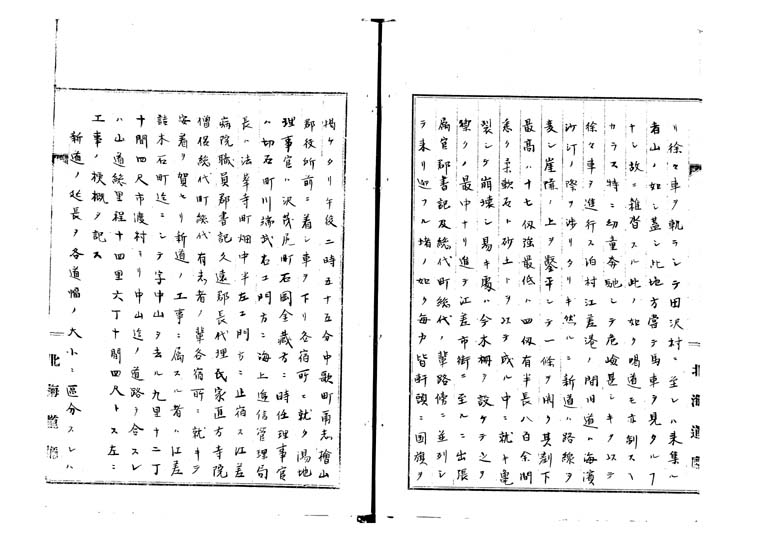 リ徐々車ヲ軌ランテ田沢村ニ至レハ来集ル
者山ノ如シ蓋シ此地方嘗テ馬車ヲ見タルフ
ナシ故ニ雑沓スル此ノ如ク喝道モ亦制スヘ
カラス特ニ幼童奔馳シテ危嶮是シキヲ以テ
徐々車ヲ進行ス泊村江差港ノ間旧道ハ海濱
沙汀ノ際ヲ渉リタリキ然ルニ新道ハ路線ヲ
変シ崖墻ノ上ヲ鑿平シテ一條ヲ開ク其削下
最高ハ十七仭強最低ハ四仭有半長八百余間
悉ク柔軟石ト砂土トヲ以テ成ル中ニ就キ亀
裂シテ崩壊シ易キ處ハ今木柵ヲ設ケテ之ヲ
禦クノ最中ナリ進テ江差市街ニ至ルニ出張
属官郡書記及総代町総代ノ輩路傍ニ並列シ
テ来リ迎フル堵ノ如ク毎力皆軒頭ニ国旗ヲ
掲ケタリ午後二時五十五分中歌町爾志檜山
郡役所前ニ着シ車ヲ下リ各宿所ニ就ク湯地
理事官ハ沢茂尻町石岡金蔵方ニ時任理事官
ハ切石町川端武右エ門方ニ海上逓信管理局
長ハ法華寺町畑中半左エ門方ニ止宿ス江差
病院職員郡書記久遠郡長代理氏家直方寺院
僧侶総代町総代有志者ノ輩各宿所ニ就キテ
安着ヲ賀セリ新道ノ工事ニ属スル者ハ江差
詰木石町迄ニシテ字中山ヲ去ル九里十二丁
十間四尺市渡村ヨリ中山迄ノ道路ヲ合スレ
ハ山道総里程十四里六丁十間四尺トス左ニ
工事ノ梗概ヲ記ス
新道ノ延長ヲ各道幅ノ大小ニ區分スレハ
北海道廳
北海道廳